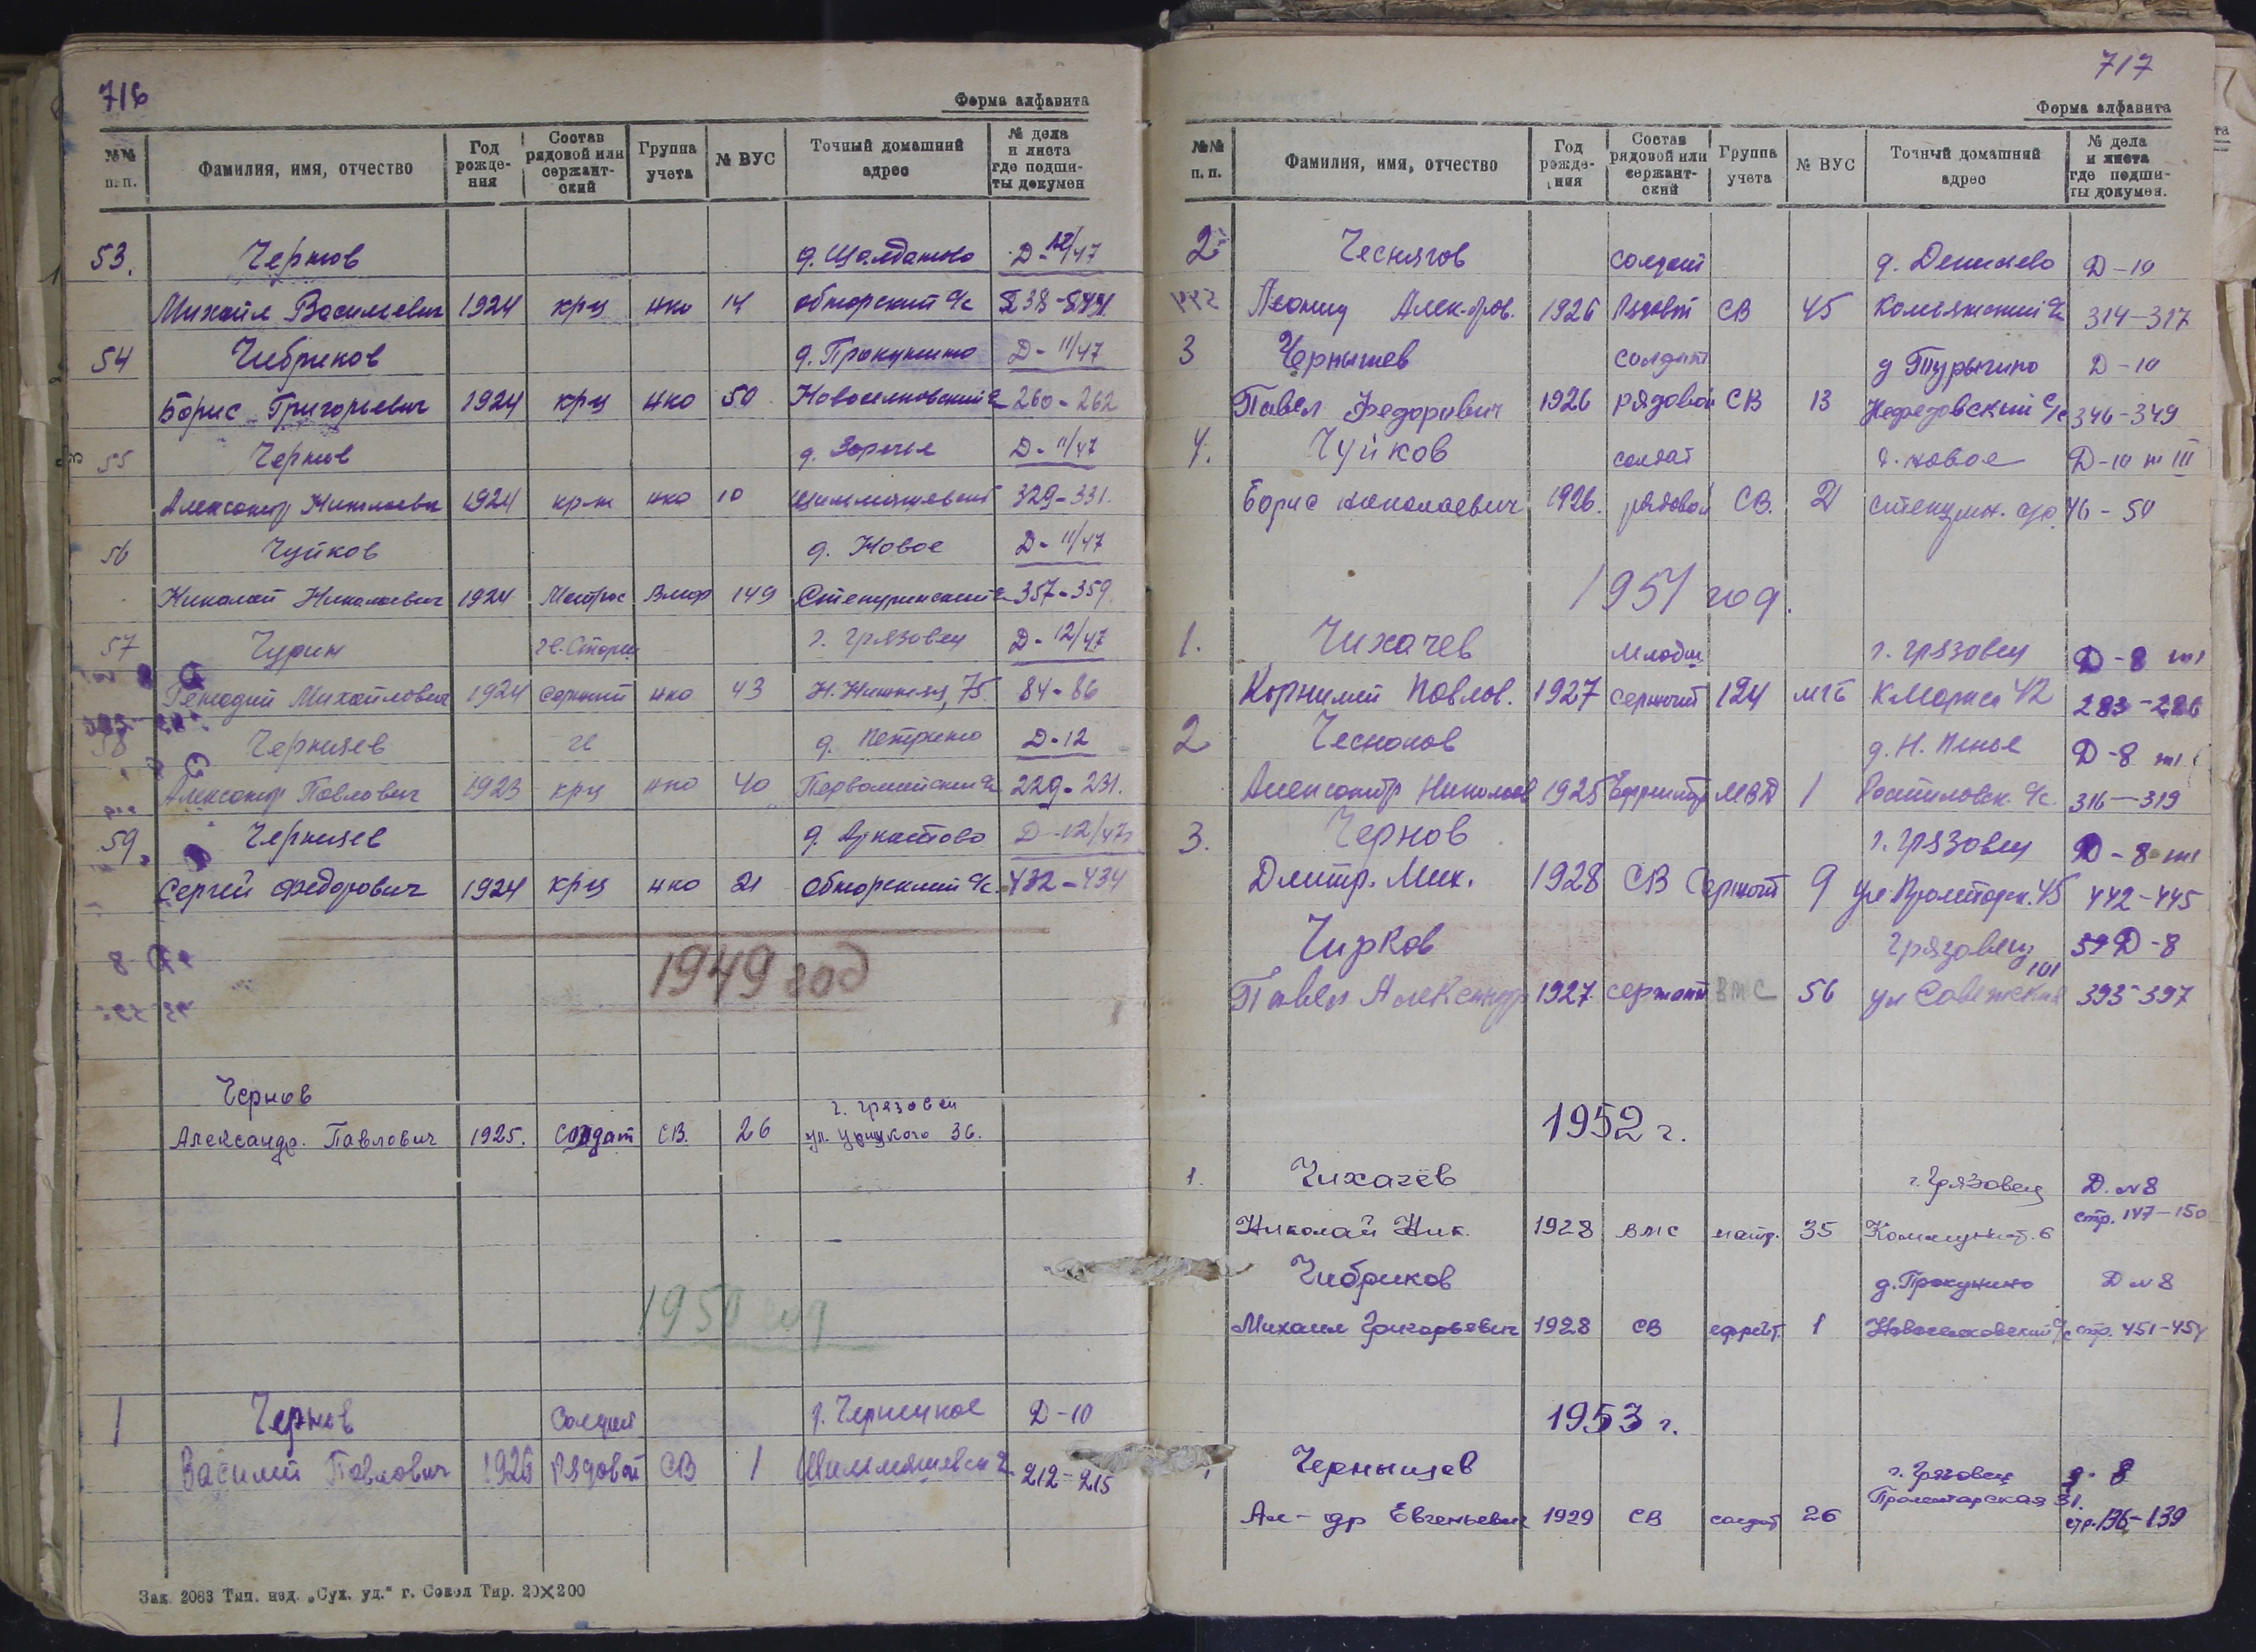 716
Форма алфавита
№№ п. п. Фамилия, имя, отчество Год рожде- ния Состав рядовой или сержант- ский Группа учета № ВУС Точный домашний адрес № дела и листа где подши- ты докумен
53. Чернов д. Шалданово Д-12/47
Михаил Васильевич 1924 крц нко 14 обнорский с/с
54 Чибриков д. Прокунино Д-11/47
Борис Григорьевич 1924 крц нко 50 Новоселковский с/с 260-262
55 Чернов д. Заречье Д-11/47
Александр 1924 нко 10 329-331.
56 Чуйков д. Новое Д-11/47
Николай Николаевич 1924 Матрос Вмф 149 Степуринский с/с 357-359.
57 Чурин г. Грязовец Д-12/47
Генадий Михайлович 1924 нко 43 75 84-86
58 Чернцев д. Д-12
Александр Павлович 1923 крц нко 40 Первомайский с/с 229-231.
59. Чернцев д. Д-12/47
Сергей Федорович 1924 крц нко 21 Обнорский с/с. 432-434
1949 год
Чернов г. Грязовец
Александр. Павлович 1925. солдат СВ. 26 ул. Урицкого 36.
1950 год
1 Чернов Солдат д. Чернецкое Д-10
Василий Павлович 1926 Рядовой СВ 1 212-215
Зак. 2083 Тип. изд. „Сух. уд.“ г. Сокол Тир. 20×200
717
Форма алфавита
№№ п. п. Фамилия, имя, отчество Год рожде- ния Состав рядовой или сержант- ский Группа учета № ВУС Точный домашний адрес № дела и листа где подши- ты докумен.
2 Чесняков солдат д. Д-10
Леонид 1926 Рядовой СВ 45 314-317
3 Чернышев солдат д Д-10
Павел Федорович 1926 рядовой СВ 13 Нефедовский с/с 346-349
4. Чуйков солдат д. новое Д-10 т III
Борис николаевич 1926. рядовой СВ. 21 46-50
1951 год.
1. Чихачев г. Грязовец Д-8 т1
Корнилий Павлов. 1927 сержант 124 МГБ К Маркса 42 283-286
2 Чесноков д. Н. Пенье Д-8 т1
Александр Николаев 1925 Ефрейтор МВД 1 Ростиловск. с/с. 316-319
3. Чернов г. Грязовец Д-8 т1
Дмитр. Мих. 1928 СВ Сержант 9 ул Пролетарск. 45 442-445
Чирков Грязовец 39 Д-8
Павел Александр 1927 сержант ВМС 56 ул Советская 101 393-397
1952 г.
1. Чихачёв г. Грязовец Д. № 8
Николай Ник. 1928 вмс матр. 35 Коммунист. 6 стр. 147-150
Чибриков д. Прокунино Д № 8
Михаил Григорьевич 1928 СВ ефрейт. 1 Новоселковский с/с стр. 451-454
1953 г.
Чернышев г. Грязовец д. 8
Ал-др Евгеньевич 1929 СВ солдат 26 Пролетарская 31. стр. 136-139